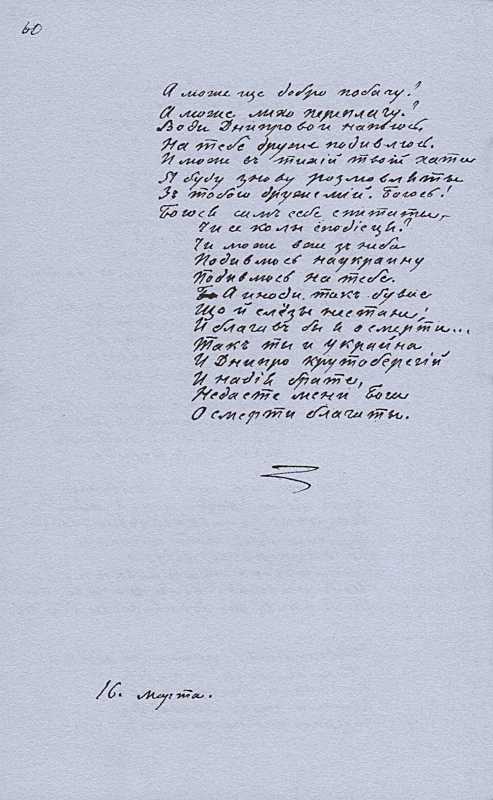 60
А може ще добро побачу?
А може лихо переплачу?
Води Днипровои напьюсь,
На тебе друже подивлюсь.
И може въ тихій твоій хати
Я буду знову розмовляты
Зъ тобою друже мій. Боюсь!
Боюсь самъ себе спитаты,
Чи се колы сподіецця?
Чи може вже зъ неба
Подивлюсь на украину
Подивлюсь на тебе.
А иноди такъ бувае
Що й слёзы нестане;
И благавъ бы я о смерти...
Такъ ты и украйна
И Днипро крутоберегій
И надія брате,
Недаете мени Бога
О смерти благаты.
16. марта.